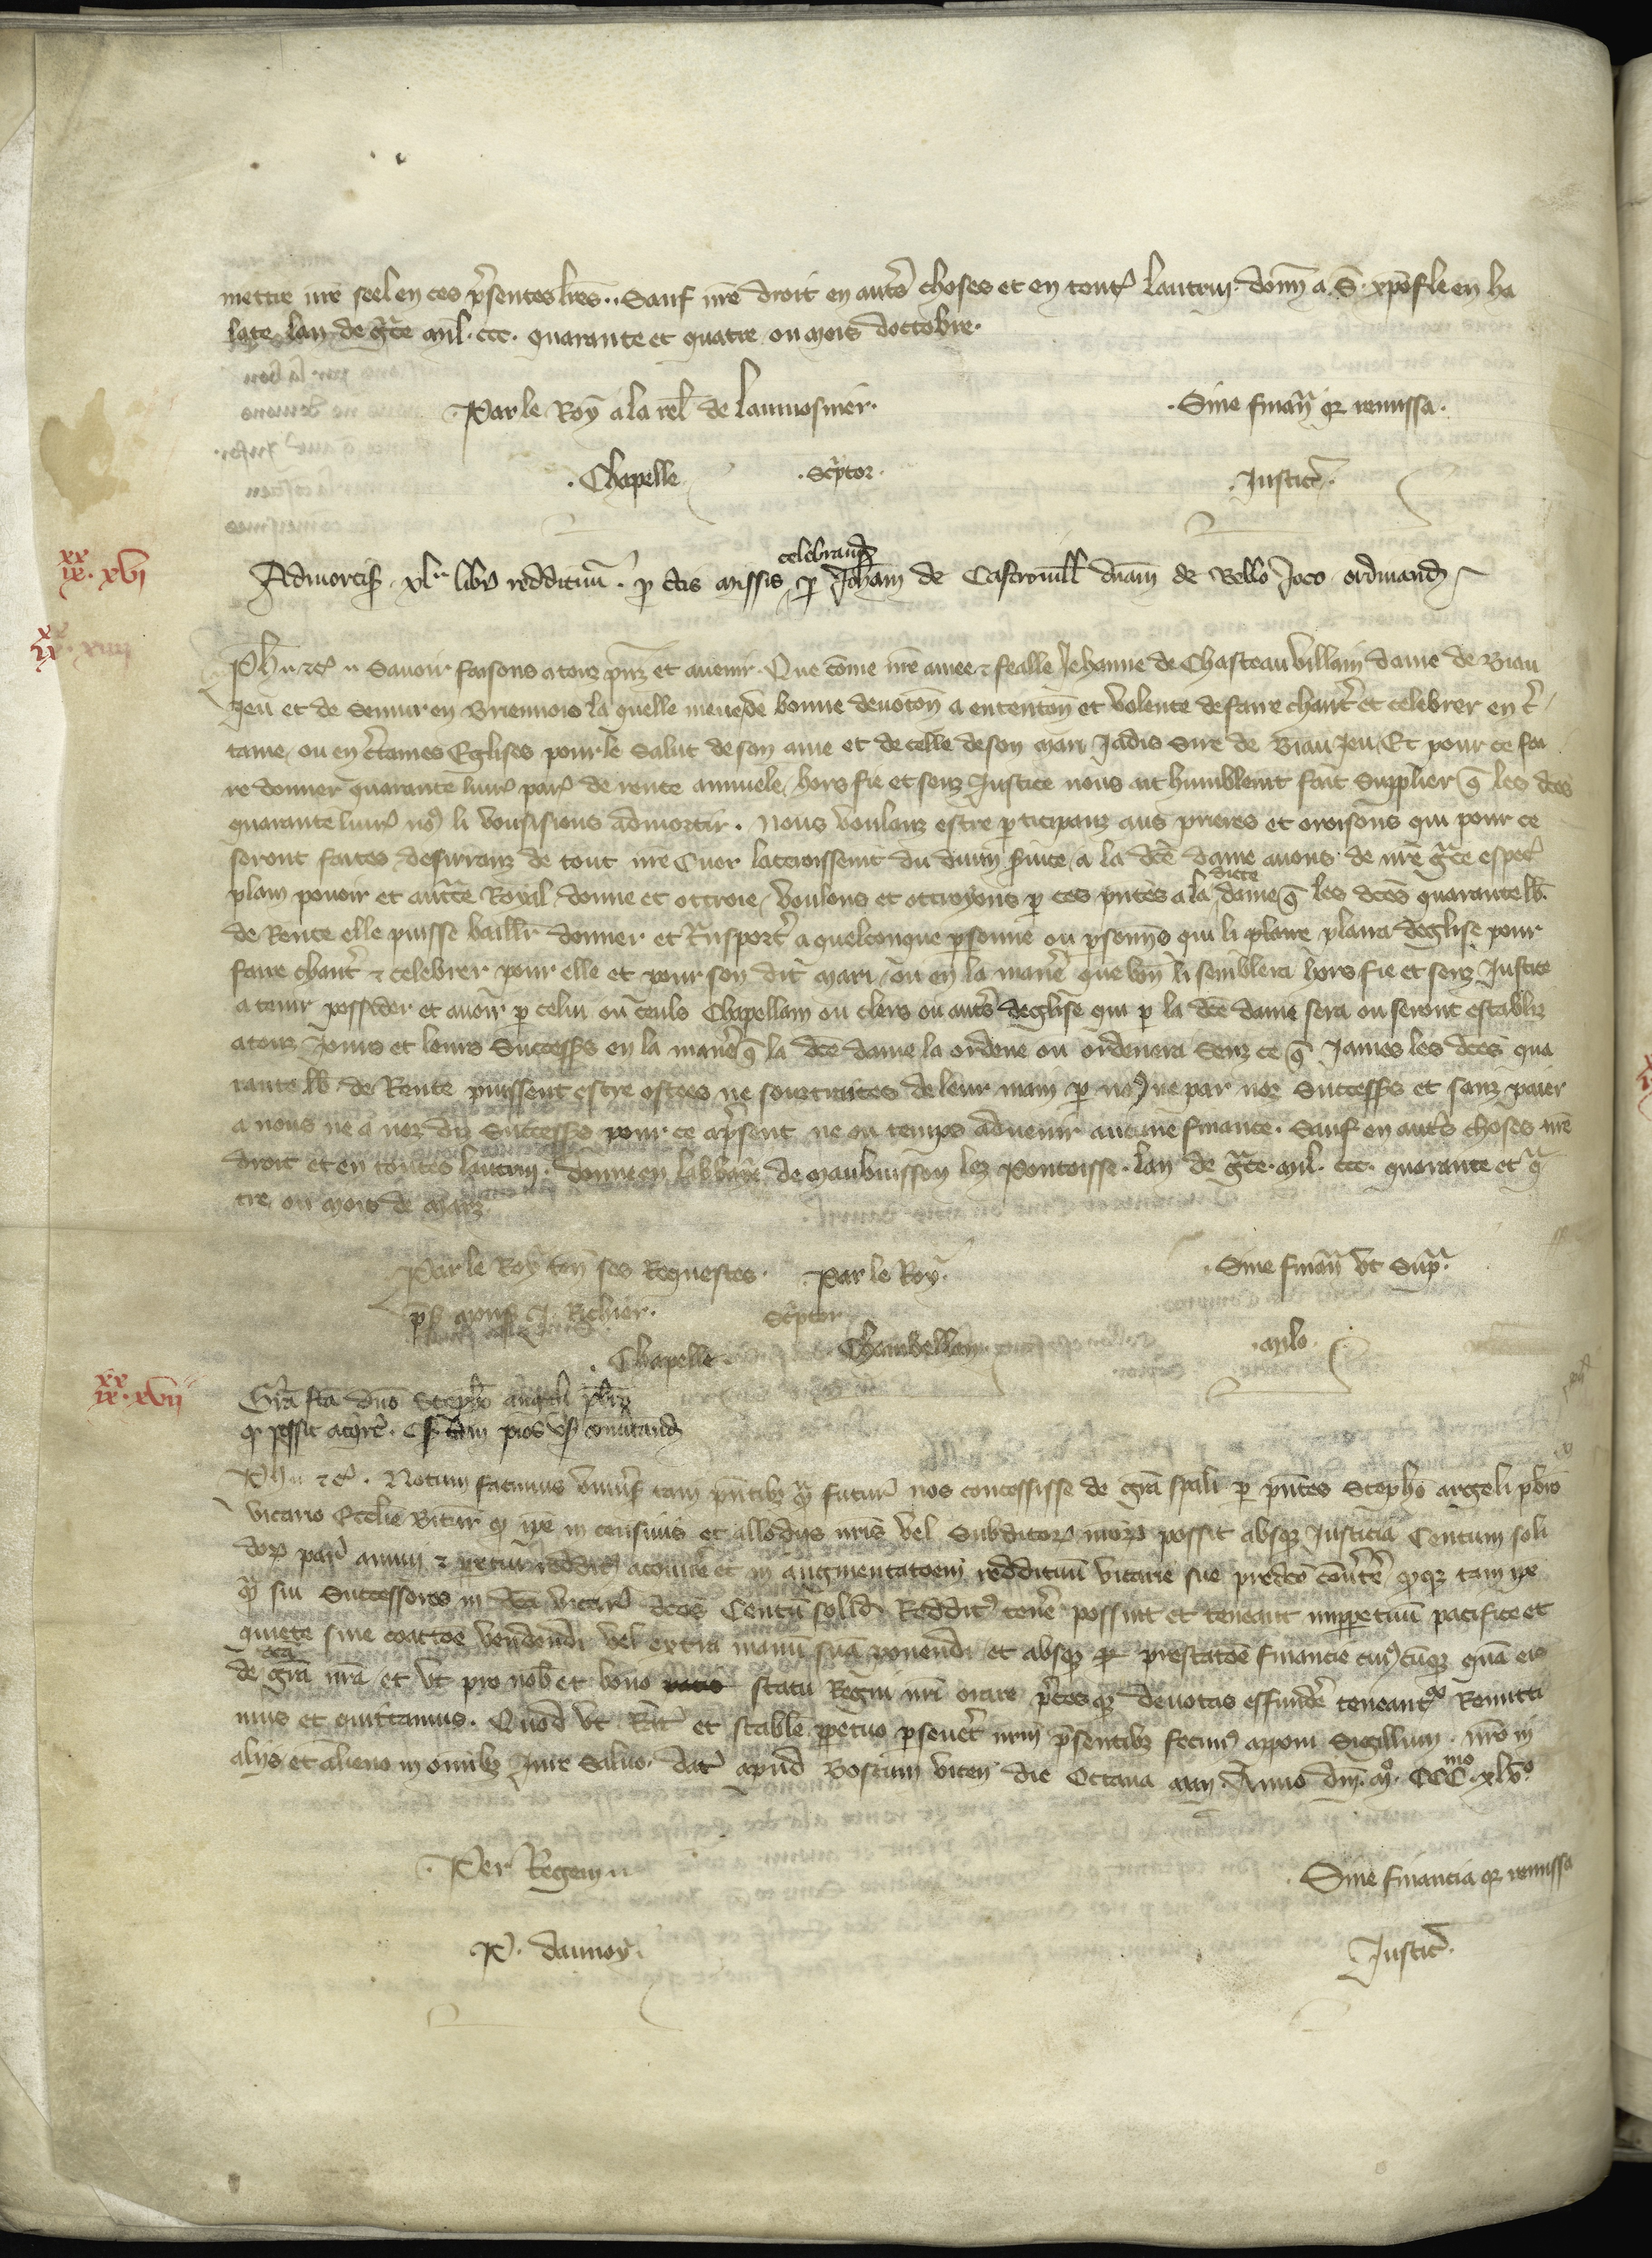 mettre nr̄e seel en ces p̄sentes lr̄es. Sauf nr̄e droit en autr̄s choses et en tout lautruy. donn̄ a S. xpōfle en ha
late lan de gr̄ce mil. ccc. quarante et quatre ou mois doctobre.
Par le Roy a la rel̄ de laumosnier.
Sine finan̄ qz remissa.
Chapelle
Sc̄ptor.
Justic̄.
xx
ix. xvi
celebrand̄
Admortis̄. xl. libr̄ reddituū. p̄ c̄tis missis p̄ Joh̄am de Castrovill̄ dn̄am de Bello Joco ordinand̄
xx
ix.
Ph̄. etc̄. Savoir faisons a touz p̄nz et avenir. Que cōme nr̄e amee et fealle Jehanne de Chasteau villain dame de Biau
jeu et de Semur en Briennois la quelle meue de bonne devotōn a ententōn et volente de faire chant̄ et celebrer en c̄
taine, ou en c̄taines Eglises pour le salut de son ame et de celle de son mari Jadis Sire de Biau Jeu, Et pour ce fai
re donner quarante livr̄ par̄ de rente annuele, hors fie et senz Justice nous ait humblemt̄ fait supplier q̄ les dc̄es
quarante livr̄ no9 li vousissions admortir. Nous voulanz estre p̄ticipanz aus prieres et oroisons qui pour ce
seront faites, desirranz de tout nr̄e cuer lacroissemt̄ du divin s̄vice, a la dc̄e dame avons de nr̄e gr̄ce espec̄
diete
plain povoir et auct̄e Royal donne et ottroie, voulons et ottroyons p̄ ces pn̄tes a la dame q̄ les dc̄es quarante lb̄.
de Rente elle puisse baillr̄ donner et tn̄sport̄ a quelconque p̄sonne ou p̄sonnes qui li plaire plaira deglise pour
faire chant̄ et celebrer pour elle et pour son dit mari, ou en la manēr que bn̄ li semblera hors fie et senz Justice
a tenir possider et avoir p̄ celui ou ceuls Chapellain ou clers ou autr̄s deglise qui p̄ la dc̄e dame sera ou seront establiz
a touz jours et leurs Success̄s en la manēr q̄ la dc̄e dame la ordene ou ordenera Senz ce q̄ James les dc̄es qua
rante lb̄ de Rente puissent estre ostees ne soustraites de leur main p̄ no9 ne par noz Success̄s et sanz paier
a nous ne a noz diz Success̄s pour ce ap̄sent ne ou temps advenir aucune finance. Sauf en autr̄s choses nr̄e
droit et en toutes lautruy. Donne en labbaye de Maubuisson lez Pontoisse. lan de gr̄ce mil. ccc. quarante et q̄
tre ou mois de Marz
Par le Roy ten̄ ses Requestes.
Par le Roy.
Sine finan̄ vt Sup̄.
Richier.
Sc̄ptor
Chapelle.
Chambellan.
Milo
xx
ix. xvii
Gr̄a fc̄a dn̄o Steph̄o p̄br̄o
qz possit
Ph̄. etc̄. Notum facimus univ̄s tam pn̄tibz q̄ futur̄ nos concessisse de gr̄a sp̄ali p̄ pn̄tes Steph̄o argeli p̄br̄o
vicario Ecclīe Bitur̄ q̄ ip̄e in censivis et allodiis nr̄is vel subditor̄ nr̄or̄ possit absqz Justicia Centum soli
dor̄ par̄ annui et p̄petui reddit̄ acquirē et in augmentatōem reddituū vicarie sue predc̄e conv̄tē, q̄qz tam ip̄e
q̄ sui Successores in dc̄a vicar̄ dc̄os Centū solid̄ Reddit̄ tenē possint et teneant imp̄petuū pacifice et
quiete sine coactōe vendendi vel extra manū suā ponendi et absqz prestatōe financie cui9cūqz quā eis
de gr̄a nr̄a et vt pro nob̄ et bono statu Regni nr̄i orare p̄cesqz devotas effundē teneant̄ Remitti
mus et quittamus. Quod vt Rat̄ et stabile p̄petuo p̄sevēt nr̄m p̄sentibz fecim9 apponi Sigillum. nr̄o in
aliis et alieno in om̄ibz Jure salvo. Dat̄ apud Boscum viceñ die Octava Anno dn̄i. m̊. CCC mo. xlv̊.
Per Regem.
Sine financia qz remissa
P. daunoy.
Justic̄.